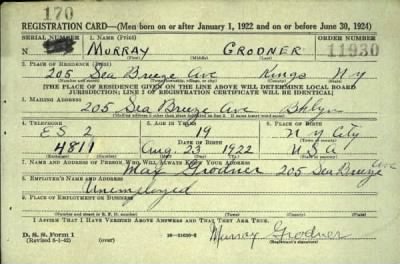 170
REGISTRATION CARD—(Men born on or after January 1, 1922 and on or before June 30, 1924)
SERIAL NUMBER 1. NAME (Print) ORDER NUMBER
MURRAY GRODNER 11930
(First) (Middle) (Last)
2. PLACE OF RESIDENCE (Print)
205 Sea Breeze Ave Kings N Y
(Number and street) (Town, township, village, or city) (County) (State)
[THE PLACE OF RESIDENCE GIVEN ON THE LINE ABOVE WILL DETERMINE LOCAL BOARD
JURISDICTION; LINE 2 OF REGISTRATION CERTIFICATE WILL BE IDENTICAL]
3. MAILING ADDRESS
205 Sea Breeze Ave Bklyn
[Mailing address if other than place indicated on line 2. If same insert word same]
4. TELEPHONE 5. AGE IN YEARS 6. PLACE OF BIRTH
ES 2 19 N Y City
DATE OF BIRTH
4811 Aug 23 1922 USA
7. NAME AND ADDRESS OF PERSON WHO WILL ALWAYS KNOW YOUR ADDRESS
Max Grodner 205 Sea Breeze Ave
8. EMPLOYER'S NAME AND ADDRESS
Unemployed
9. PLACE OF EMPLOYMENT OR BUSINESS
(Number and street or R. F. D. number) (Town) (County) (State)
I AFFIRM THAT I HAVE VERIFIED ABOVE ANSWERS AND THAT THEY ARE TRUE.
D. S. S. Form 1
(Revised 5-1-42)
Murray Grodner
(Registrant's signature)